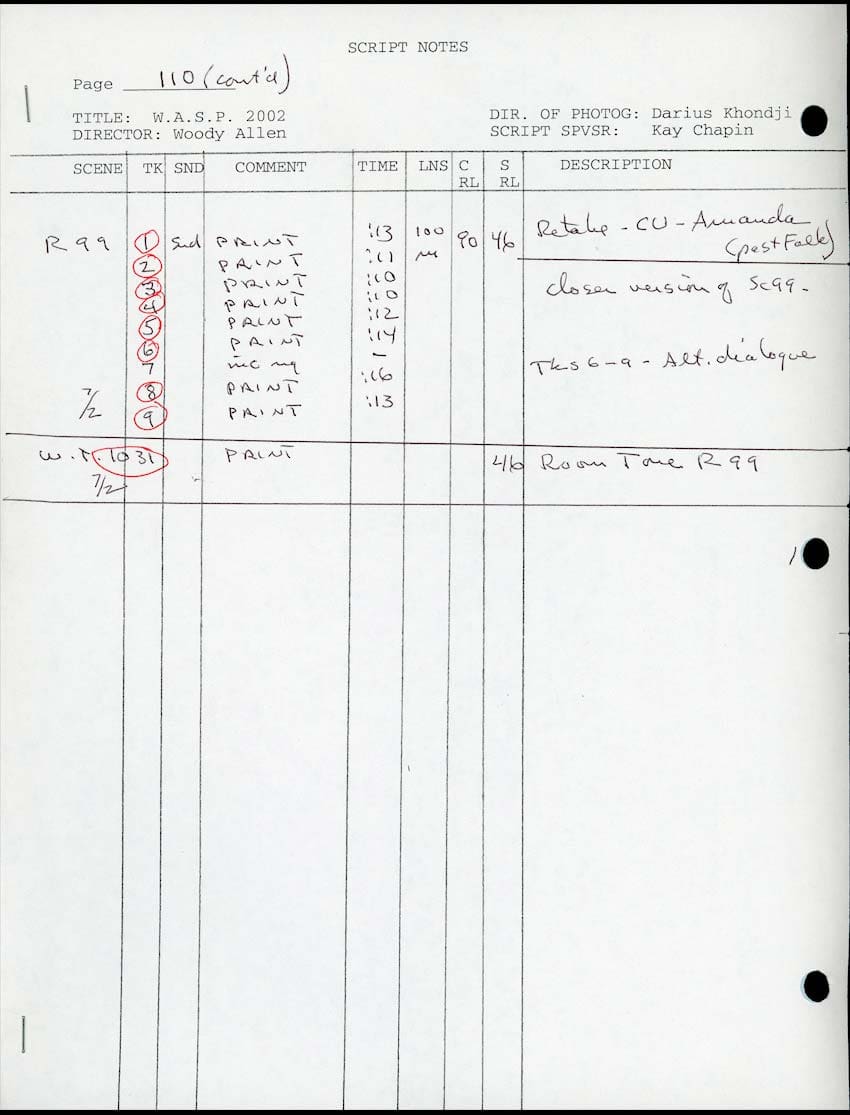 SCRIPT NOTES
Page 110 (cont'd)
TITLE: W.A.S.P. 2002 DIR. OF PHOTOG: Darius Khondji
DIRECTOR: Woody Allen SCRIPT SPVSR: Kay Chapin
SCENE TK SND COMMENT TIME LNS C RL S RL DESCRIPTION
R 99 1 Snd PRINT :13 100 90 46 Retake - CU - Amanda
(past Falk)
2 PRINT :11 M
3 PRINT :10 closer version of Sc 99.
4 PRINT :10
5 PRINT :12
6 PRINT :14
7 inc ng - Tks 6-9 - Alt. dialogue
8 PRINT :16
7/2 9 PRINT :13
W.T. 1031 PRINT 46 Room Tone R 99
7/2